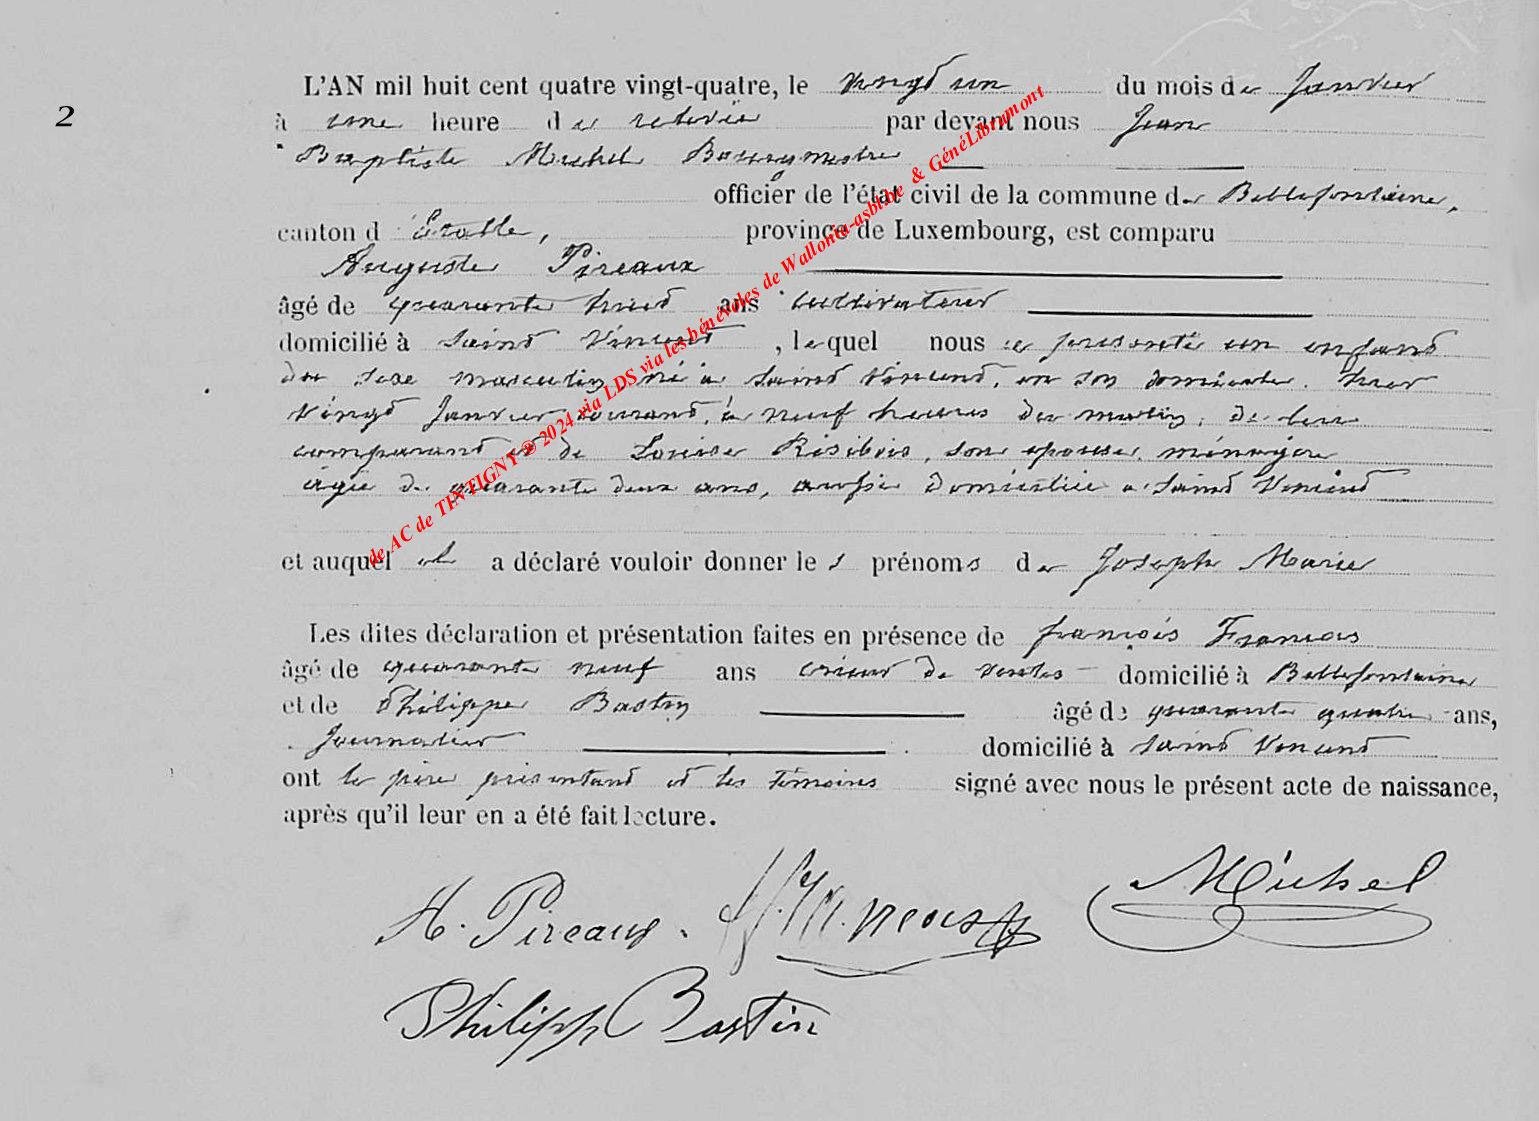 2
L'AN mil huit cent quatre vingt-quatre, le vingt un du mois de Janvier
à une heure de relevée par devant nous Jean
Baptiste Michel Bourgmestre
officier de l'état civil de la commune de Bellefontaine,
canton d'Etalle, province de Luxembourg, est comparu
Auguste Pireaux
âgé de quarante huit ans cultivateur
domicilié à Saint Vincent, lequel nous a présenté un enfant
du sexe masculin né à Saint Vincent, en son domicile, hier
vingt Janvier courant, à neuf heures du matin, de lui
comparant et de Louise Résibois, son épouse, ménagère
âgée de quarante deux ans, aussi domiciliée à Saint Vincent
et auquel il a déclaré vouloir donner les prénoms de Joseph Marie
Les dites déclaration et présentation faites en présence de françois François
âgé de quarante neuf ans crieur de ventes domicilié à Bellefontaine
et de Philippe Bastin âgé de quarante quatre ans,
Journalier domicilié à Saint Vincent
ont le père présentant et les témoins signé avec nous le présent acte de naissance,
après qu'il leur en a été fait lecture.
A. Pireaux. Michel
Philipp Bastin
de AC de TINTIGNY ® 2024 via LDS via les bénévoles de Wallonia-asbl.be & GénéLibramont